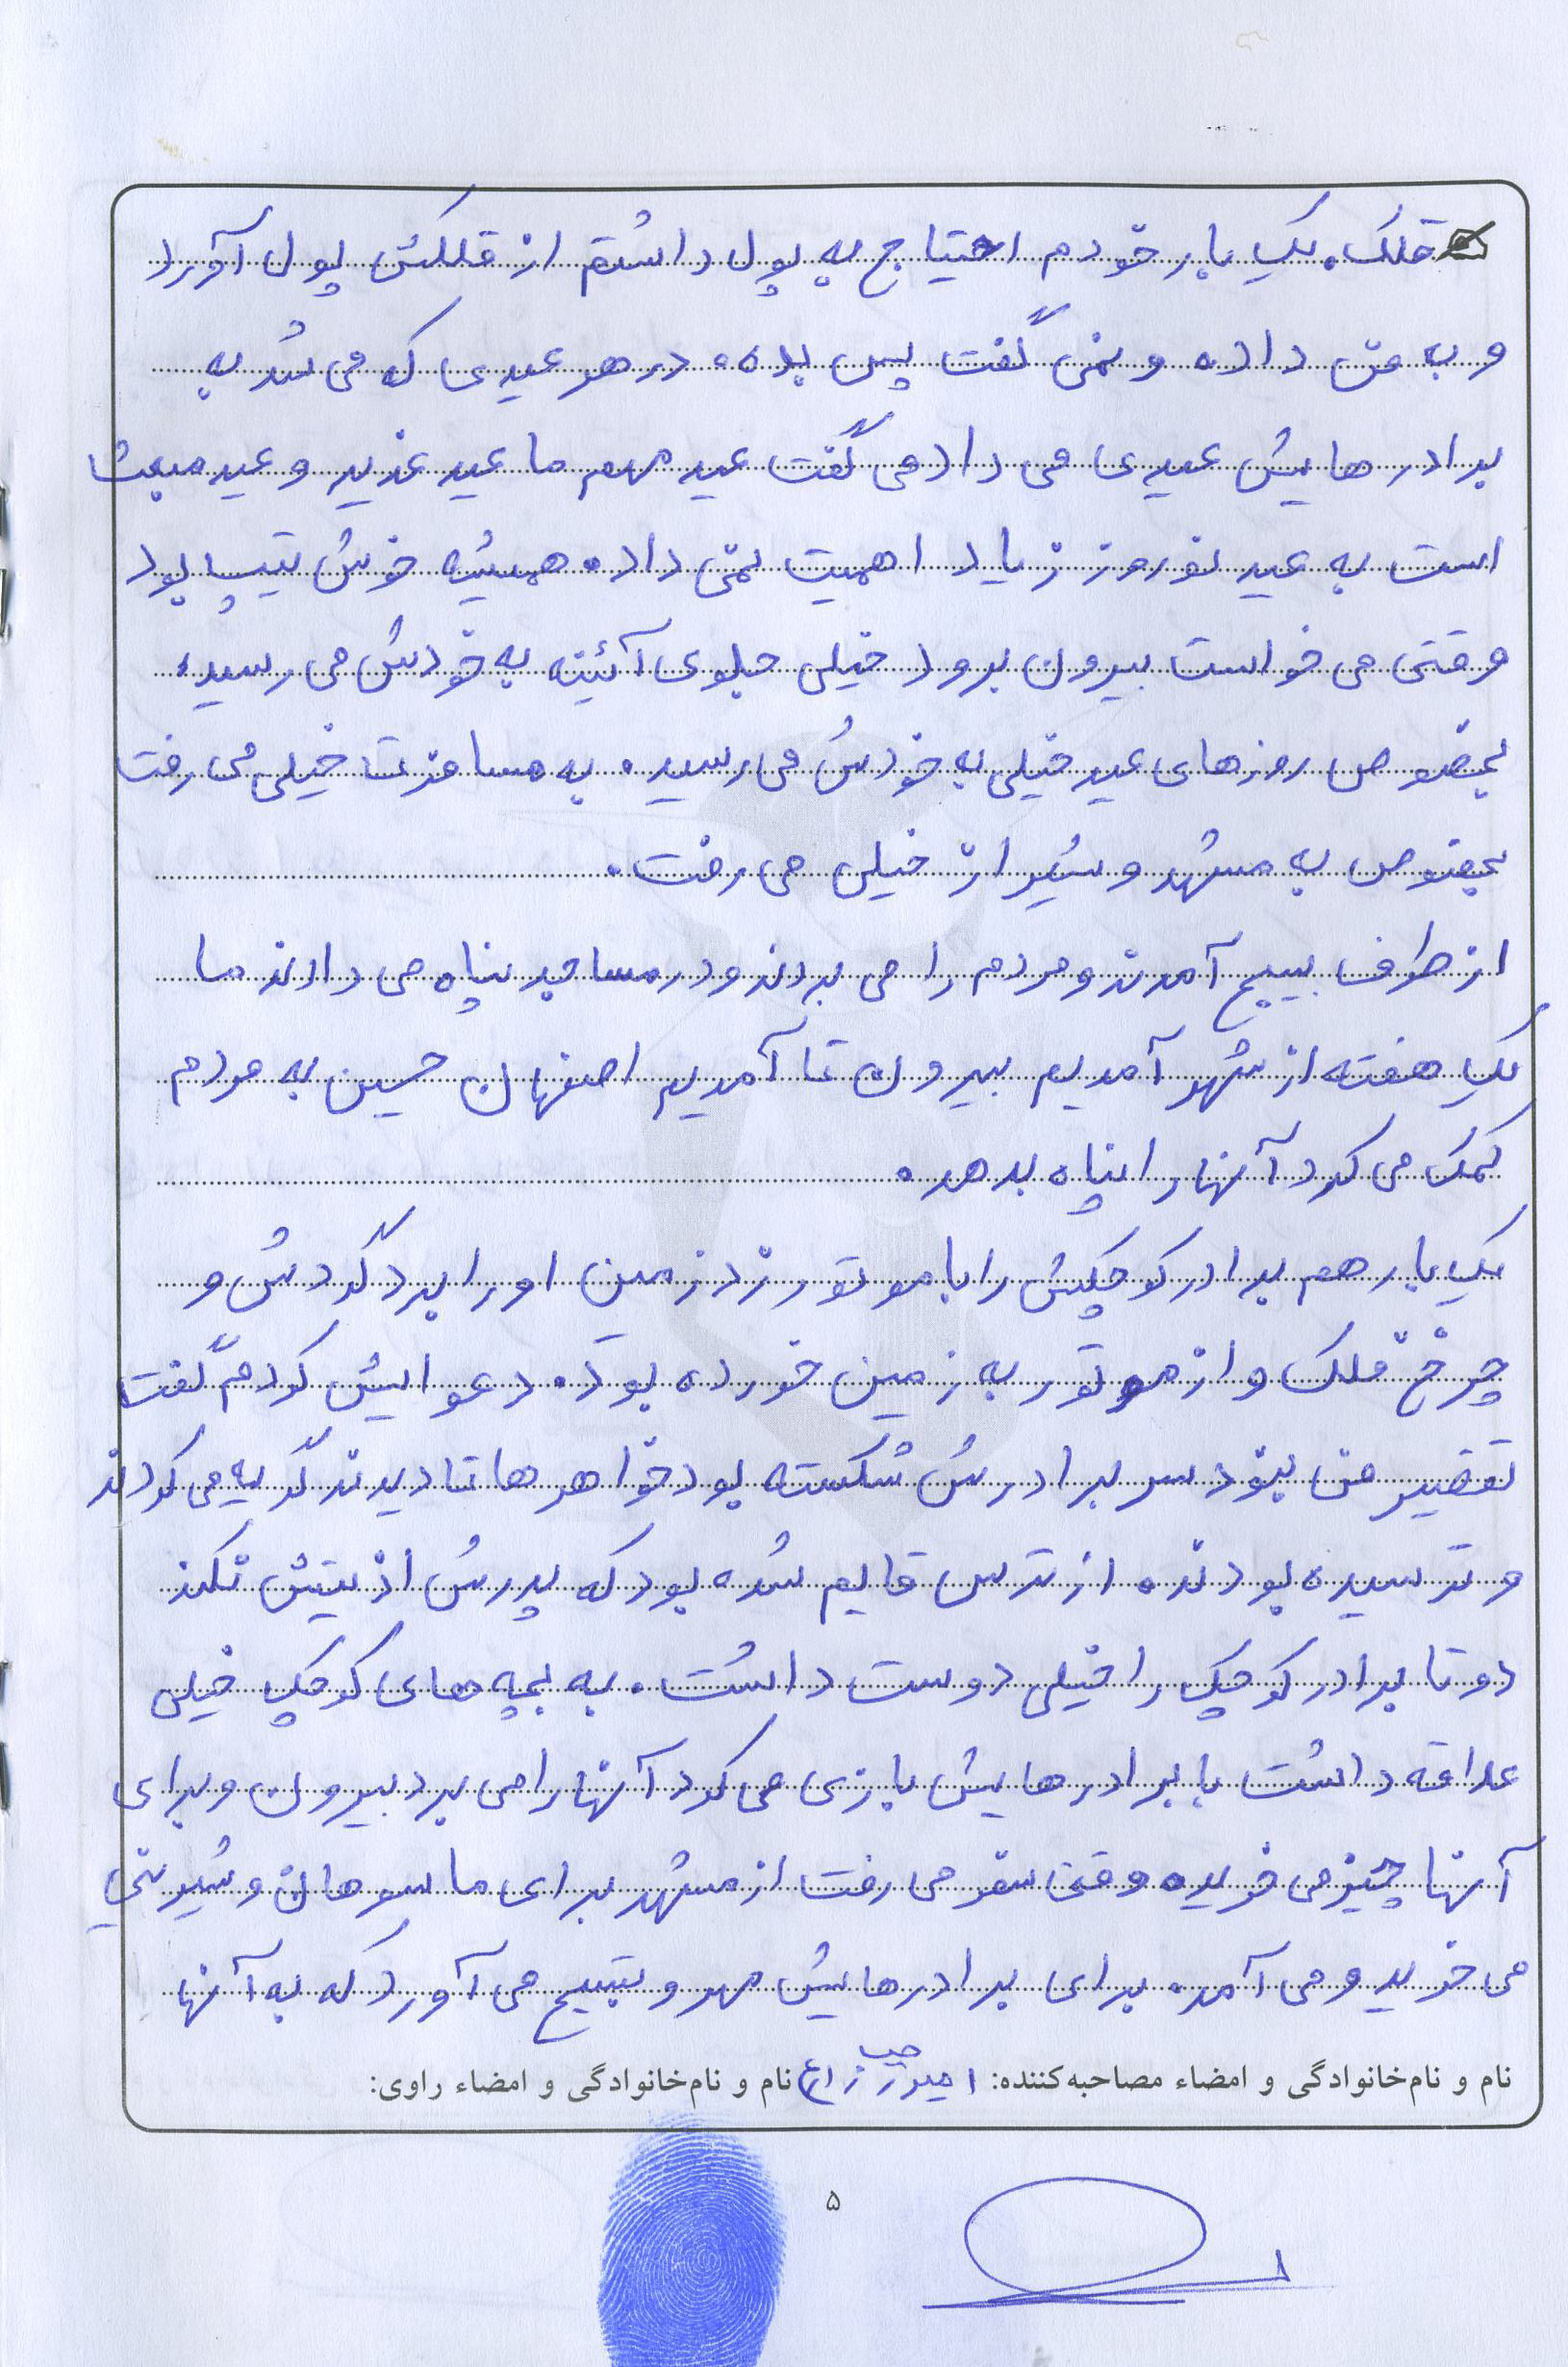 قلک. یک بار خودم احتیاج به پول داشتم از قلکش پول آورد
و به من داده و نمی گفت پس بده. در هر عیدی که می شد به
برادر هایش عیدی می داد می گفت عید مهم ما عید غدیر و عید مبعث
است به عید نوروز زیاد اهمیت نمی داد. همیشه خوش تیپ بود
وقتی می خواست بیرون برود خیلی جلوی آئینه به خودش می رسید.
بخصوص روزهای عید خیلی به خودش می رسید. به مسافرت خیلی می رفت
بخصوص به مشهد و شیراز خیلی می رفت.
از طرف بسیج آمدند و مردم را می بردند و در مساجد پناه می دادند ما
یک هفته از شهر آمدیم بیرون تا آمدیم اصفهان حسین به مردم
کمک می کرد آنها را پناه بدهد.
یک بار هم برادر کوچکش را با موتور زد زمین او را برد گردش و
چرخ فلک و از موتور به زمین خورده بود. دعوایش کردم گفت
تقصیر من نبود سر برادرش شکسته بود خواهر ها تا دیدند گریه می کردند
و ترسیده بودند. از ترس قایم شده بود که پدرش اذیتش نکند
دو تا برادر کوچک را خیلی دوست داشت. به بچه های کوچک خیلی
علاقه داشت با برادرهایش بازی می کرد آنها را می برد بیرون و برای
آنها چیز می خرید. وقتی سفر می رفت از مشهد برای ما سوهان و شیرینی
می خرید و می آمد. برای برادرهایش مهر و تسبیح می آورد که به آنها
نام و نام‌خانوادگی و امضاء مصاحبه‌کننده: نام و نام‌خانوادگی و امضاء راوی:
۵